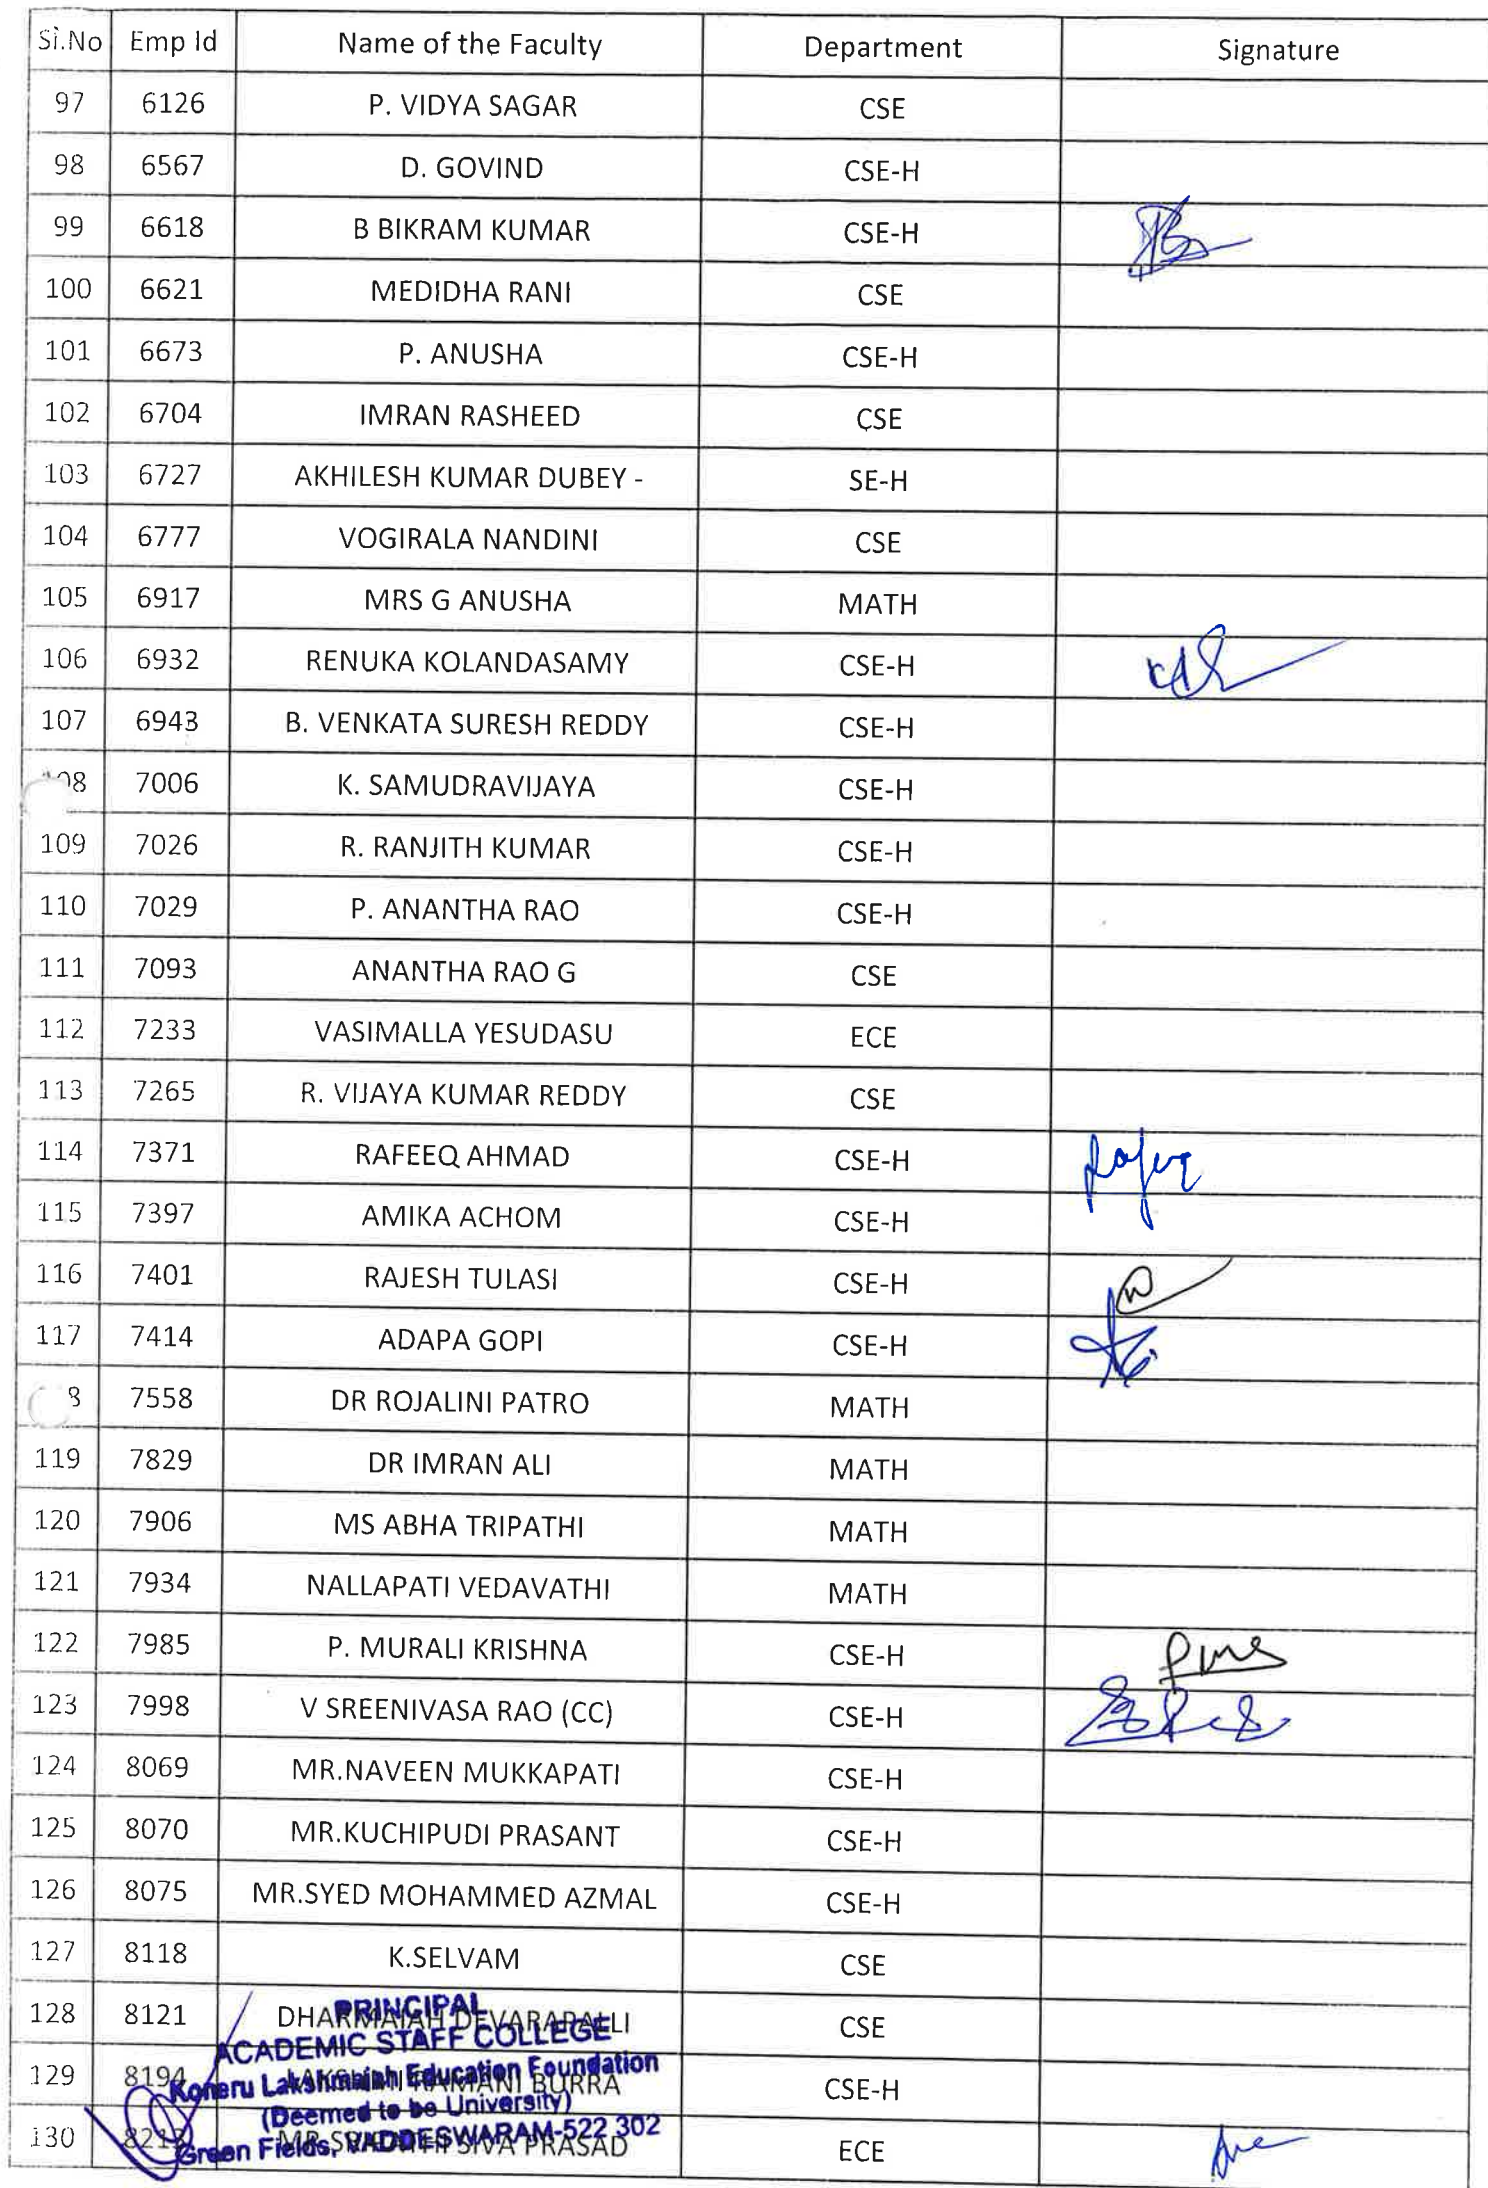 Sl.No Emp Id Name of the Faculty Department Signature
97 6126 P. VIDYA SAGAR CSE
98 6567 D. GOVIND CSE-H
99 6618 B BIKRAM KUMAR CSE-H
100 6621 MEDIDHA RANI CSE
101 6673 P. ANUSHA CSE-H
102 6704 IMRAN RASHEED CSE
103 6727 AKHILESH KUMAR DUBEY - SE-H
104 6777 VOGIRALA NANDINI CSE
105 6917 MRS G ANUSHA MATH
106 6932 RENUKA KOLANDASAMY CSE-H
107 6943 B. VENKATA SURESH REDDY CSE-H
108 7006 K. SAMUDRAVIJAYA CSE-H
109 7026 R. RANJITH KUMAR CSE-H
110 7029 P. ANANTHA RAO CSE-H
111 7093 ANANTHA RAO G CSE
112 7233 VASIMALLA YESUDASU ECE
113 7265 R. VIJAYA KUMAR REDDY CSE
114 7371 RAFEEQ AHMAD CSE-H
115 7397 AMIKA ACHOM CSE-H
116 7401 RAJESH TULASI CSE-H
117 7414 ADAPA GOPI CSE-H
8 7558 DR ROJALINI PATRO MATH
119 7829 DR IMRAN ALI MATH
120 7906 MS ABHA TRIPATHI MATH
121 7934 NALLAPATI VEDAVATHI MATH
122 7985 P. MURALI KRISHNA CSE-H
123 7998 V SREENIVASA RAO (CC) CSE-H
124 8069 MR.NAVEEN MUKKAPATI CSE-H
125 8070 MR.KUCHIPUDI PRASANT CSE-H
126 8075 MR.SYED MOHAMMED AZMAL CSE-H
127 8118 K.SELVAM CSE
128 8121 DHARMAIAH DEVARAPALLI CSE
129 8194 BURRA CSE-H
130 SIVA PRASAD ECE
PRINCIPAL
ACADEMIC STAFF COLLEGE
Koneru Lakshmaiah Education Foundation
(Deemed to be University)
Green Fields, VADDESWARAM-522 302